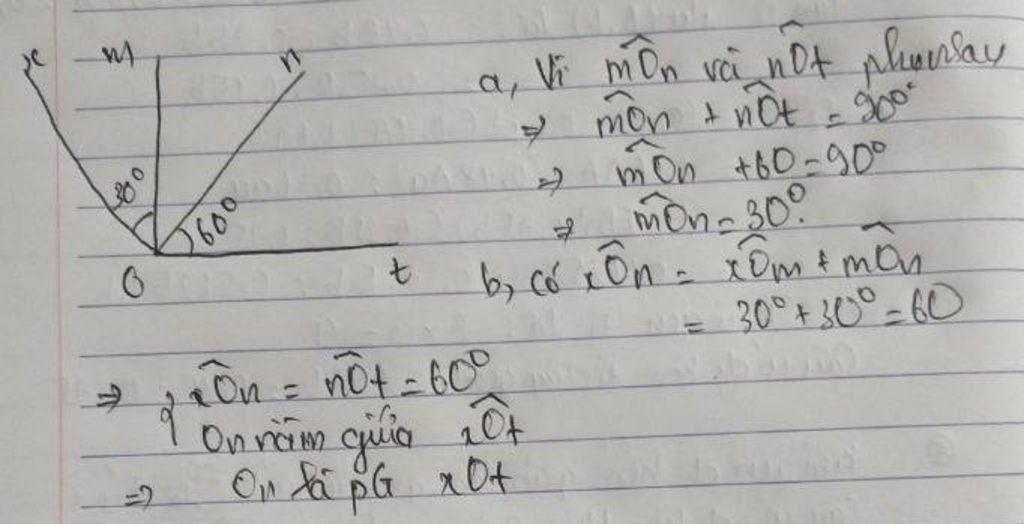 x m n
30° 60°
O t
a, Vì m̂On và n̂Ot phụ nhau
⇒ m̂On + n̂Ot = 90°
⇒ m̂On + 60 = 90°
⇒ m̂On = 30°.
b, có x̂On = x̂Om + m̂On
= 30° + 30° = 60
⇒ { x̂On = n̂Ot = 60°
On nằm giữa x̂Ot
⇒ On là pG xOt